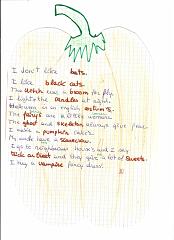 I don't like bats.
I like black cats.
The witch use a broom for fly.
I light the candles at night.
Halloween is in english autumn's.
The fairy's are little woman.
The ghost and skeleton always give fear.
I make a pumpkin cake's.
My uncle have a scarecrow.
I go to neighbour house's and I say
trick or treat and they give a lot of sweets.
I buy a vampire fancy dress.